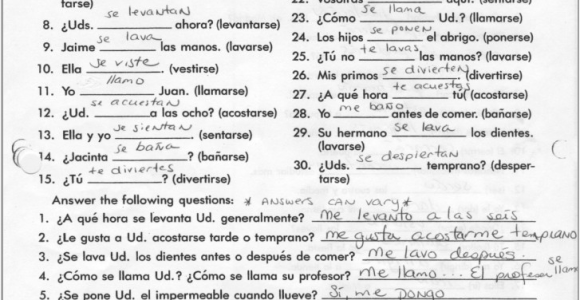 tarse)
8. ¿Uds. se levantan ahora? (levantarse)
9. Jaime se lava las manos. (lavarse)
10. Ella se viste. (vestirse)
11. Yo llamo Juan. (llamarse)
12. ¿Ud. se acuestan a las ocho? (acostarse)
13. Ella y yo se sientan. (sentarse)
14. ¿Jacinta se baña? (bañarse)
15. ¿Tú te diviertes? (divertirse)
23. ¿Cómo se llama Ud.? (llamarse)
24. Los hijos se ponen el abrigo. (ponerse)
25. ¿Tú no te lavas las manos? (lavarse)
26. Mis primos se divierten. (divertirse)
27. ¿A qué hora te acuestas tú? (acostarse)
28. Yo me baño antes de comer. (bañarse)
29. Su hermano se lava los dientes.
(lavarse)
30. ¿Uds. se despiertan temprano? (desper-
tarse)
Answer the following questions: * ANSWERS CAN VARY *
1. ¿A qué hora se levanta Ud. generalmente? Me levanto a las seis
2. ¿Le gusta a Ud. acostarse tarde o temprano? Me gusta acostarme temprano
3. ¿Se lava Ud. los dientes antes o después de comer? Me lavo después.
4. ¿Cómo se llama Ud.? ¿Cómo se llama su profesor? Me llamo... El profesor se llama
5. ¿Se pone Ud. el impermeable cuando llueve? Sí, me pongo